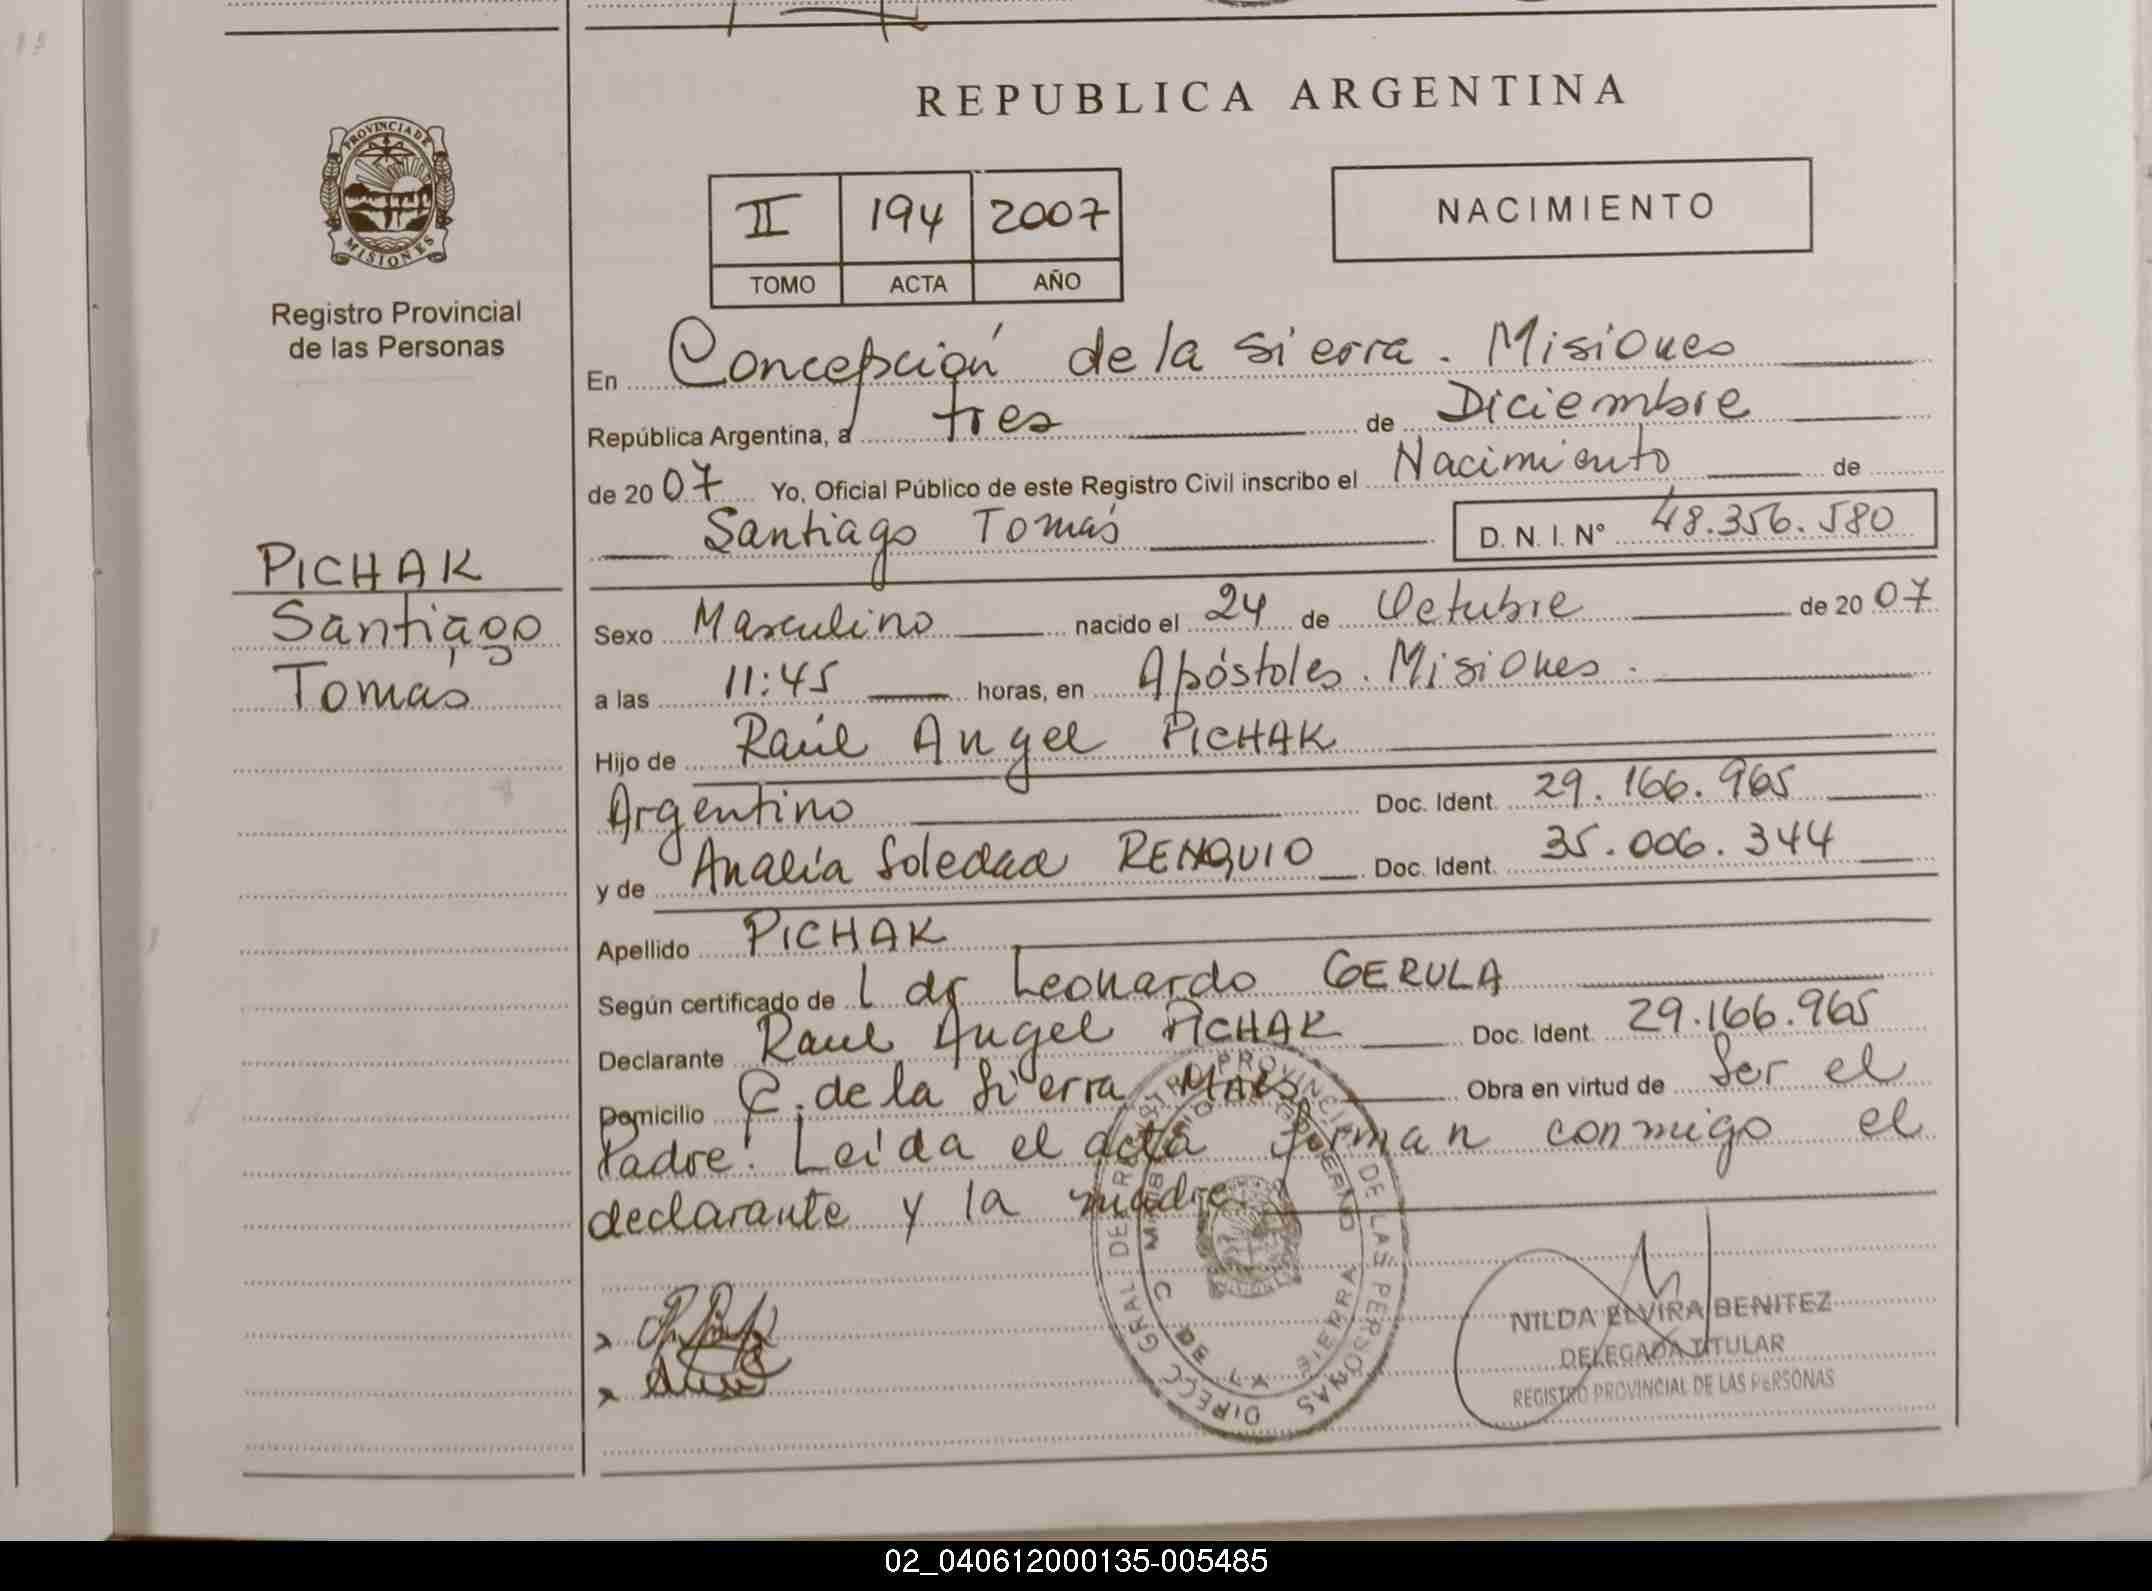 REPUBLICA ARGENTINA
PROVINCIA DE
MISIONES
Registro Provincial
de las Personas
II 194 2007
TOMO ACTA AÑO
NACIMIENTO
En Concepción de la Sierra. Misiones
República Argentina, a tres de Diciembre
de 2007 Yo, Oficial Público de este Registro Civil inscribo el Nacimiento de
Santiago Tomás D. N. I. Nº 48.356.580
PICHAK
Santiago
Tomás
Sexo Masculino nacido el 24 de Octubre de 2007
a las 11:45 horas, en Apóstoles. Misiones.
Hijo de Raúl Angel PICHAK
Argentino Doc. Ident. 29.166.965
y de Analía Soledad RENQUIO Doc. Ident. 35.006.344
Apellido PICHAK
Según certificado de l dr Leonardo GERULA
Declarante Raul Angel PICHAK Doc. Ident. 29.166.965
Domicilio C. de la Sierra Obra en virtud de Ser el
Padre. Leida el acta firman conmigo el
declarante y la madre.
DIRECC GRAL DE REGISTRO PROVINCIAL DE LAS PERSONAS
NILDA ELVIRA BENITEZ
DELEGADA TITULAR
REGISTRO PROVINCIAL DE LAS PERSONAS
02_040612000135-005485